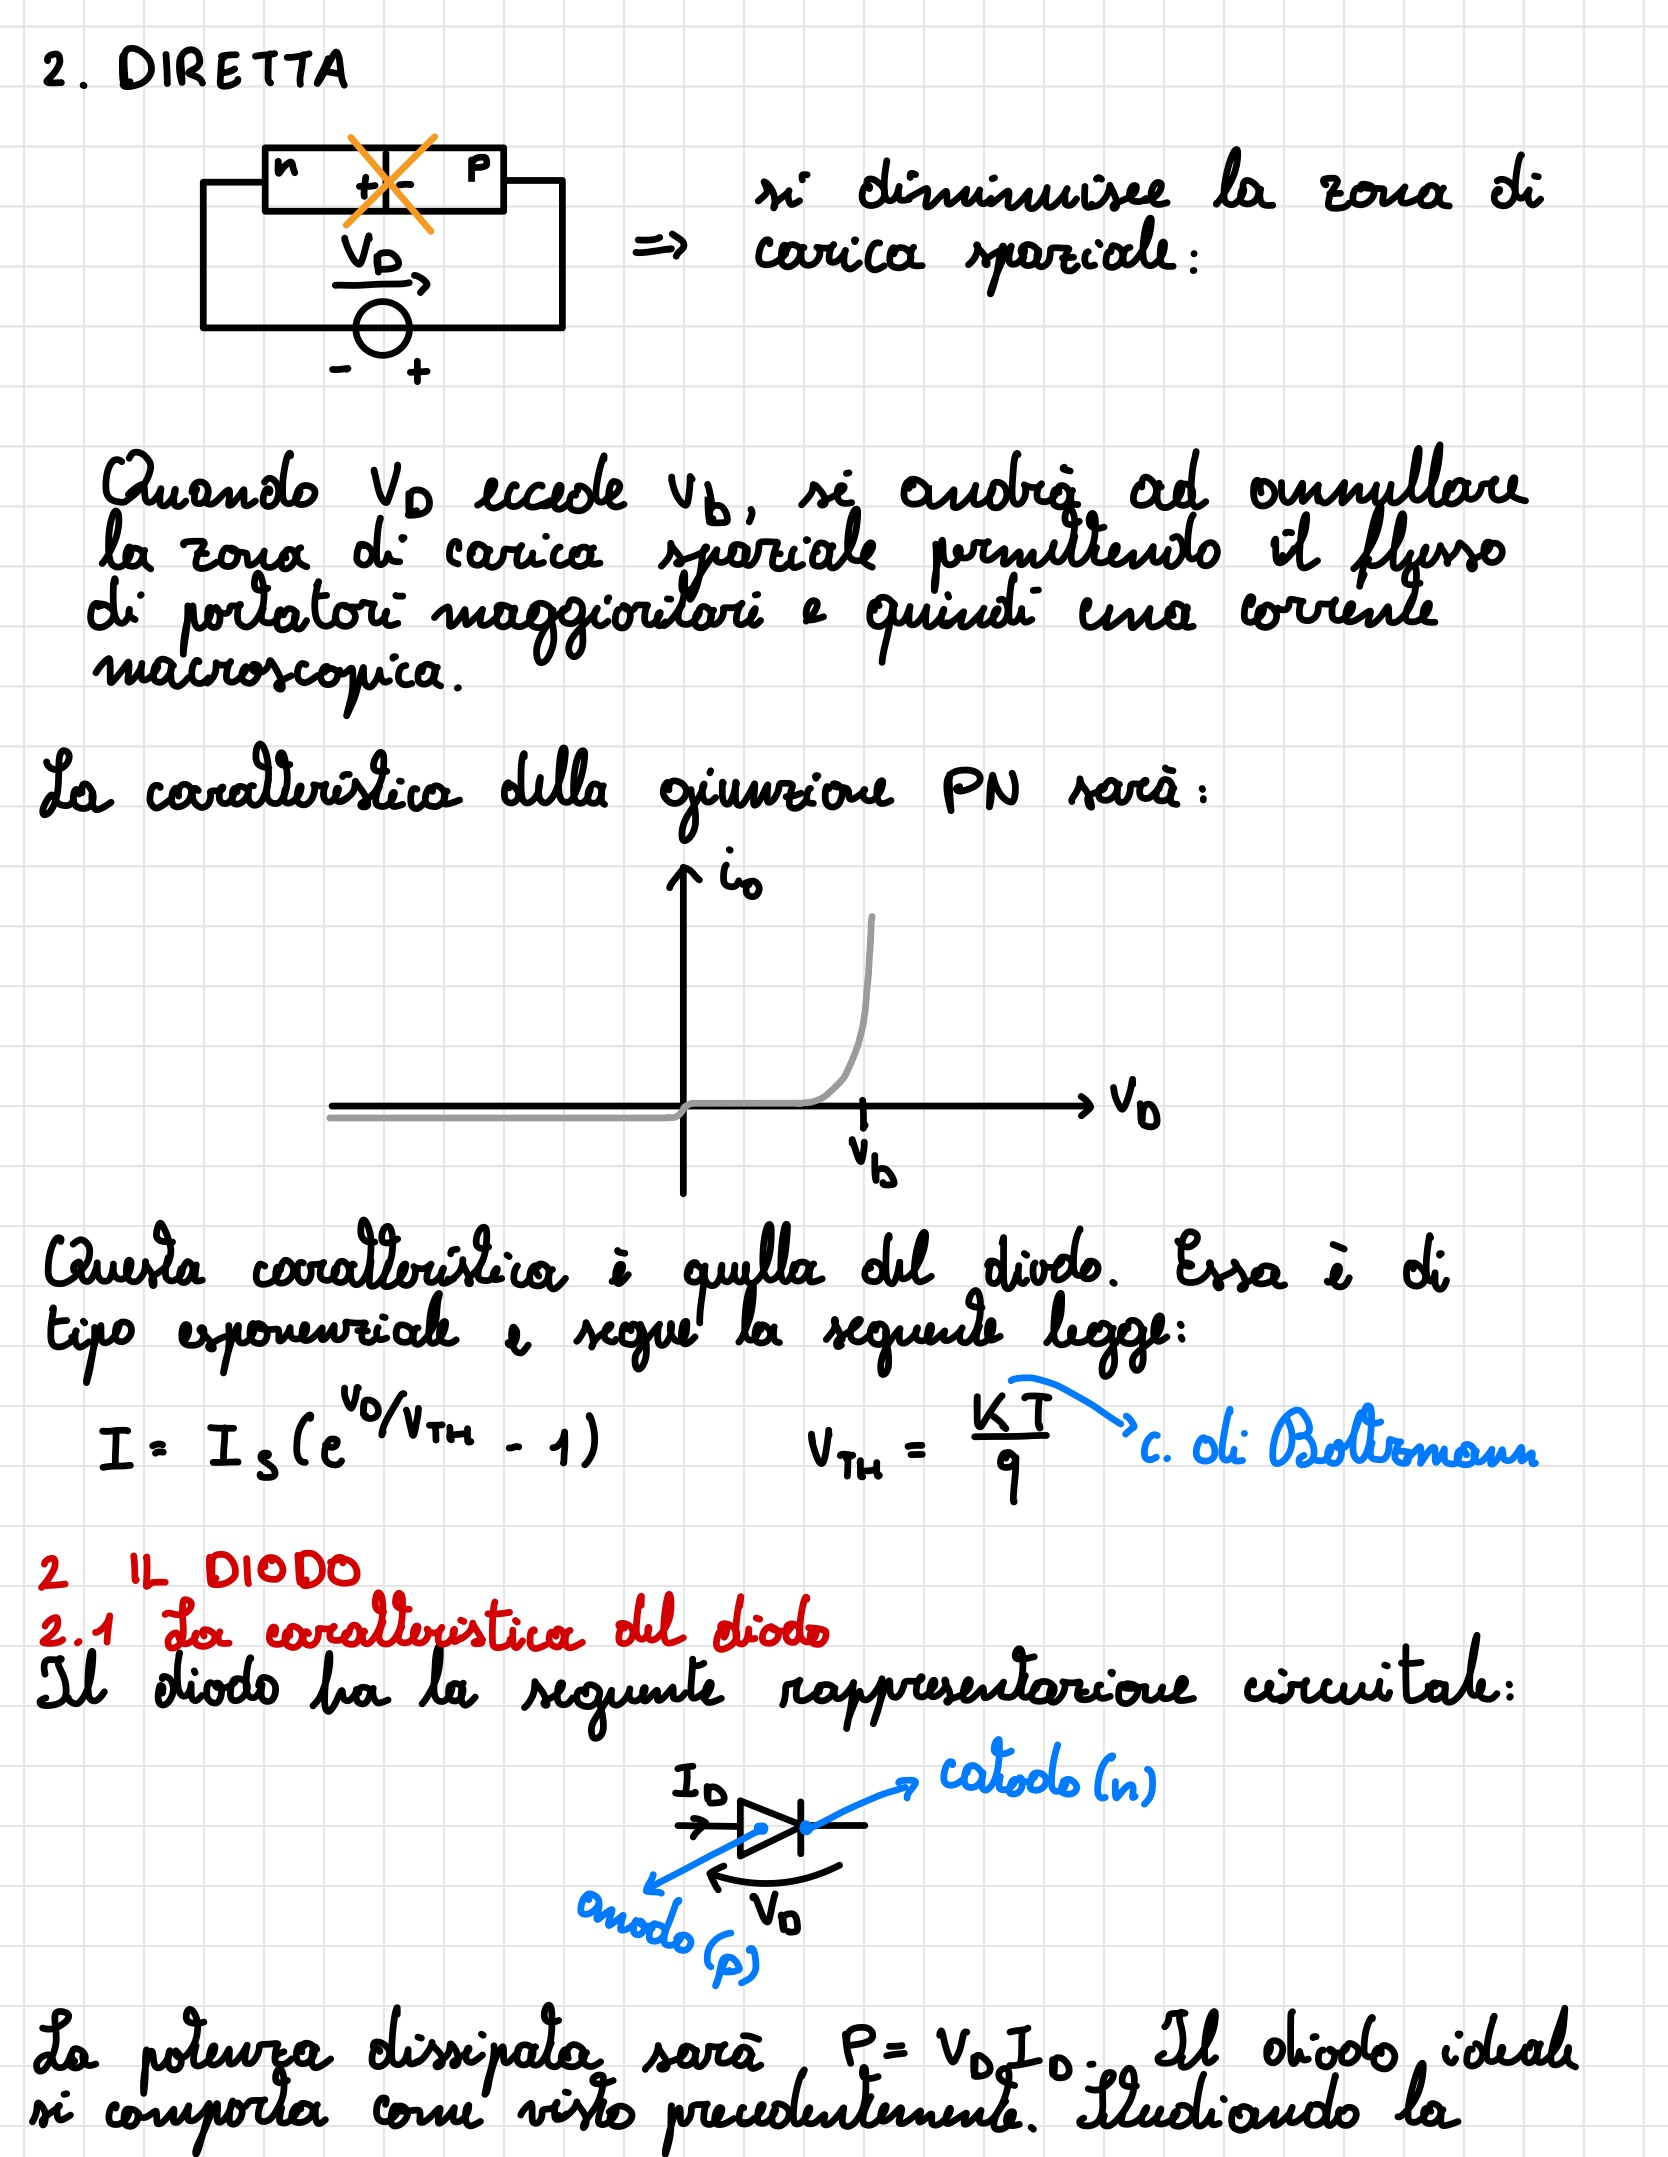 2. DIRETTA
n + - P
V_D
- +
=> si diminuisce la zona di
carica spaziale:
Quando V_D eccede V_b, si andrà ad annullare
la zona di carica spaziale permettendo il flusso
di portatori maggioritari e quindi una corrente
macroscopica.
La caratteristica della giunzione PN sarà:
i_D
V_D
V_b
Questa caratteristica è quella del diodo. Essa è di
tipo esponenziale e segue la seguente legge:
I = I_S (e^{V_D/V_TH} - 1)
V_TH = KT/q
c. di Boltzmann
2 IL DIODO
2.1 La caratteristica del diodo
Il diodo ha la seguente rappresentazione circuitale:
I_D
catodo (n)
anodo (p)
V_D
La potenza dissipata sarà P = V_D I_D. Il diodo ideale
si comporta come visto precedentemente. Studiando la